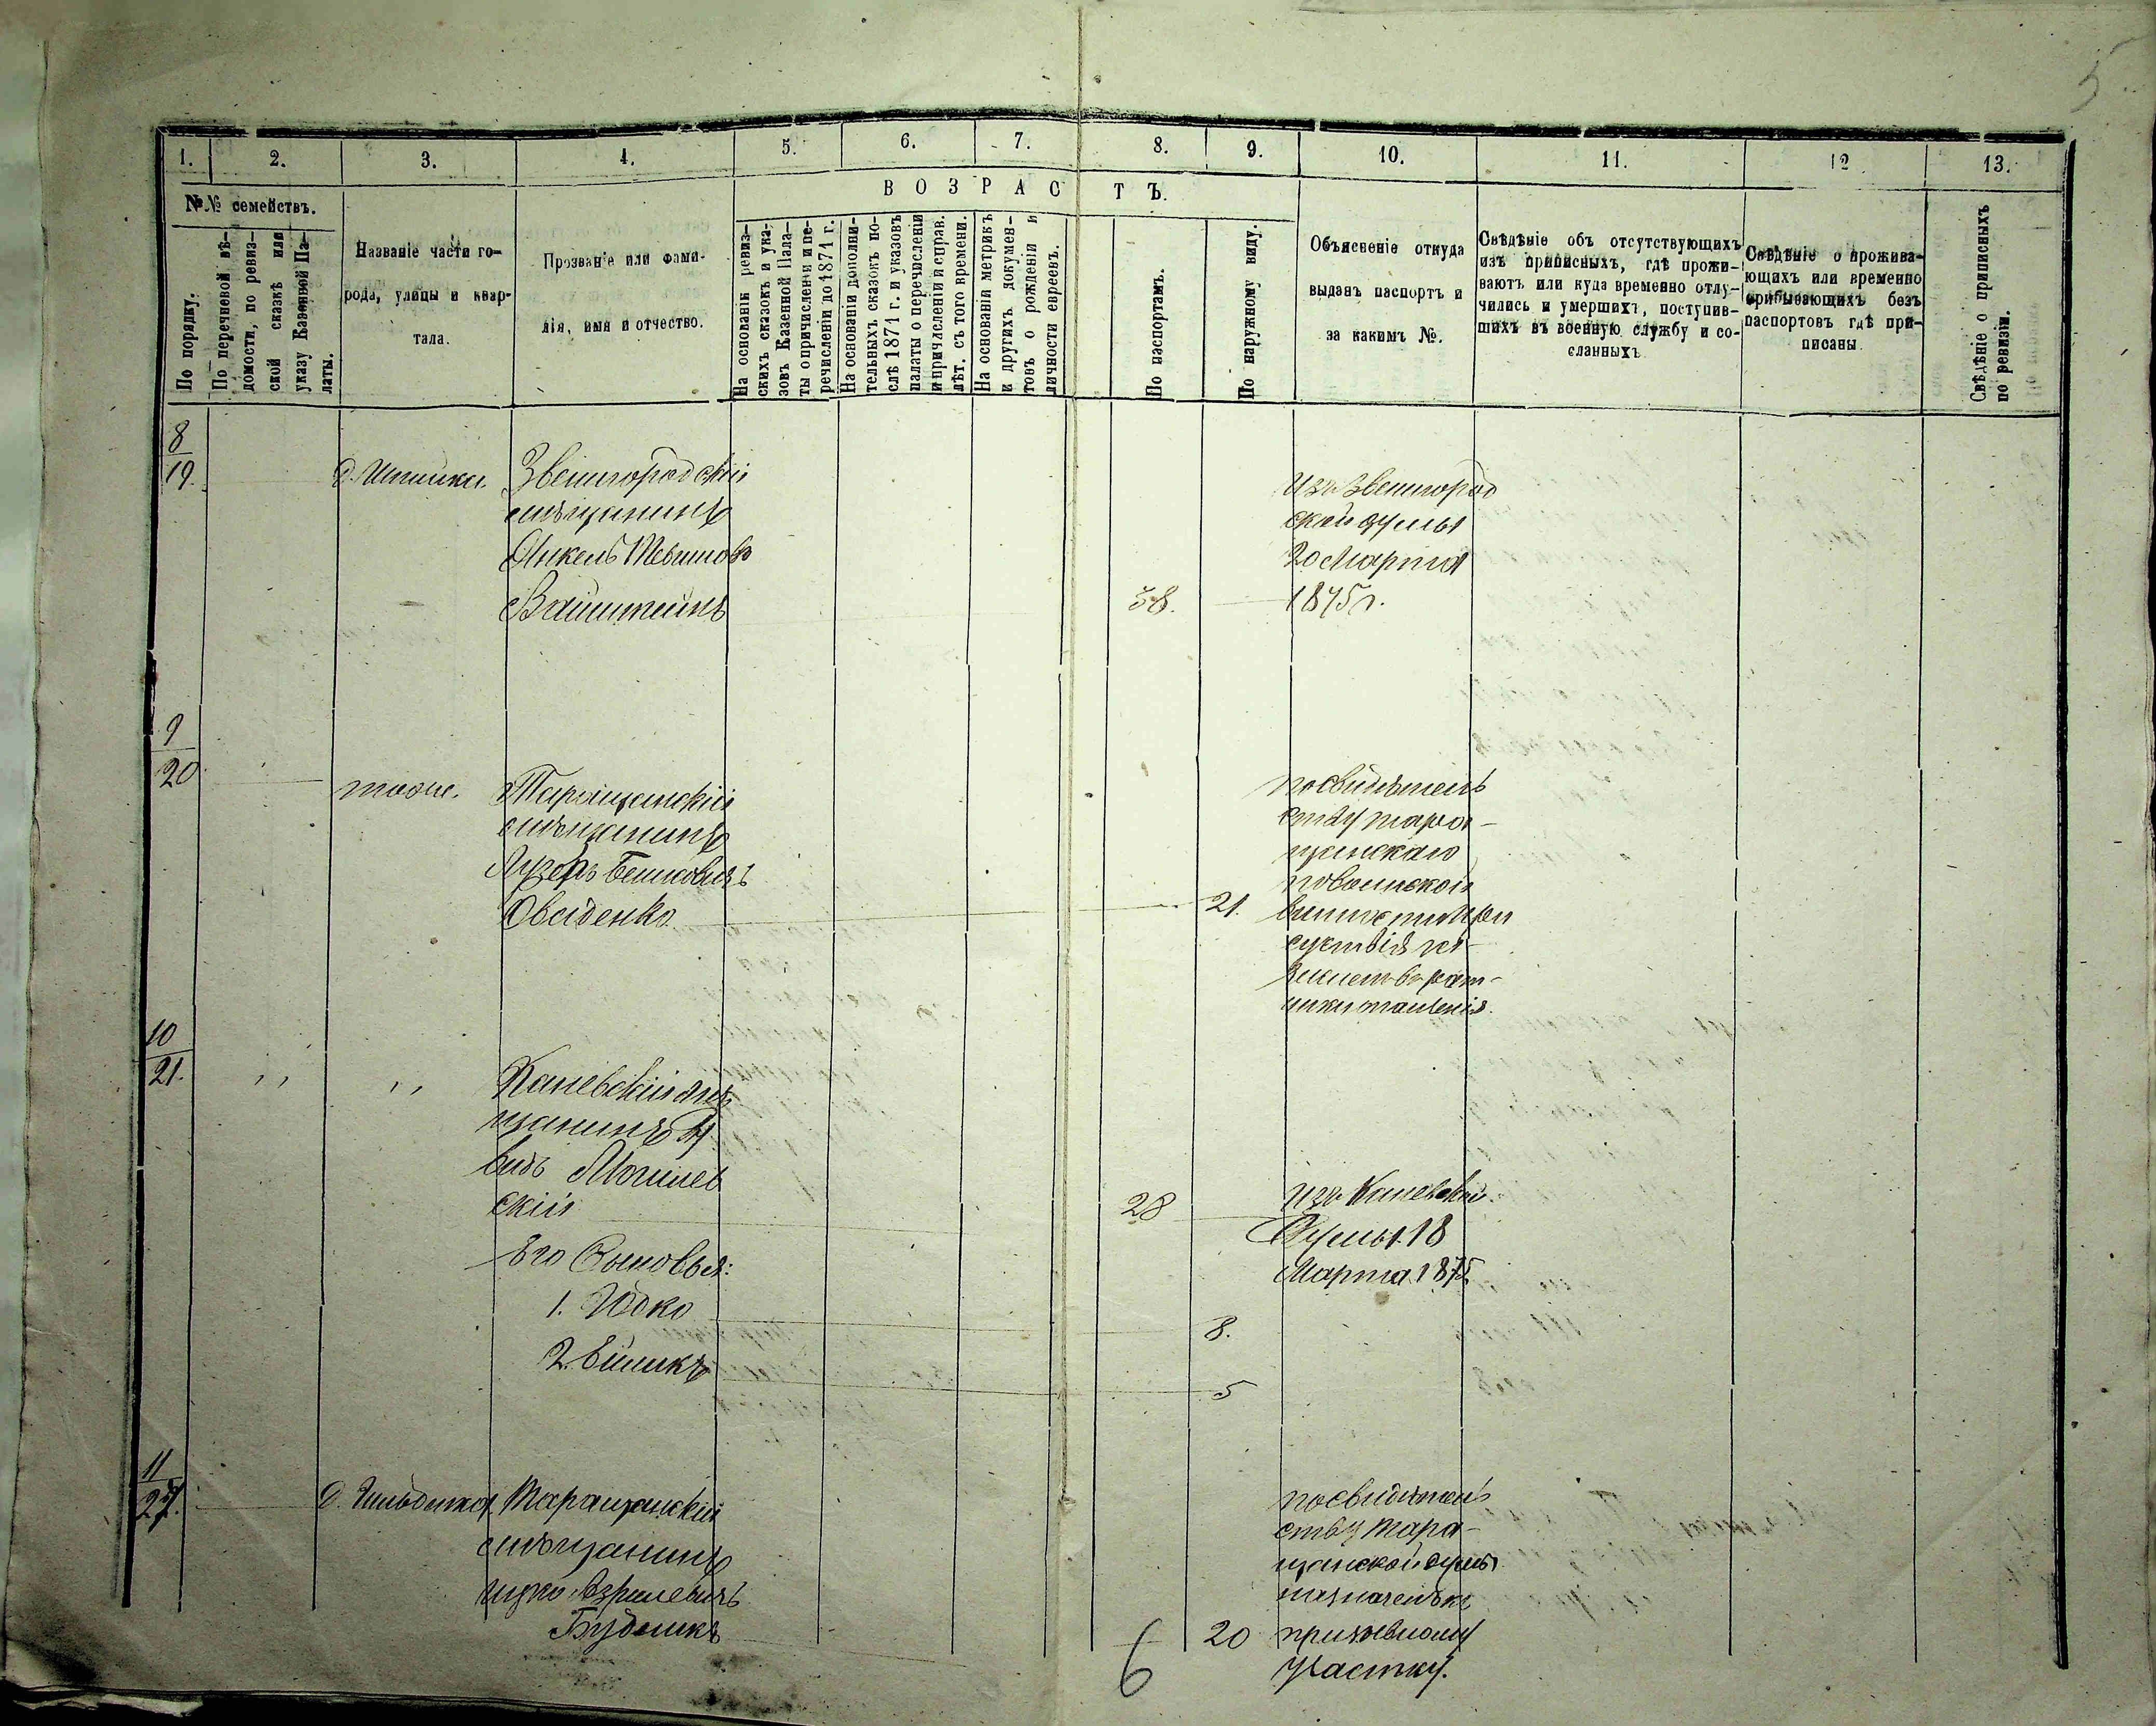 5
1. 2. 3. 4. 5. 6. 7. 8. 9. 10. 11. 12 13.
№№ семействъ.
ВОЗРАСТЪ.
По порядку.
По перечневой вѣ-
домости, по ревиз-
ской сказкѣ или
указу Казенной Па-
латы.
Названіе части го-
рода, улицы и квар-
тала.
Прозваніе или фами-
лія, имя и отчество.
На основаніи ревиз-
скихъ сказокъ и ука-
зовъ Казенной Пала-
ты о причисленіи и пе-
речисленіи до 1871 г.
На основаніи дополни-
тельныхъ сказокъ по-
слѣ 1871 г. и указовъ
палаты о перечисленіи
и причисленіи и справ.
лѣт. съ того времени.
На основаніи метрикъ
и другихъ докумен-
товъ о рожденіи и
личности евреевъ.
По паспортамъ.
По наружному виду.
Объясненіе откуда
выданъ паспортъ и
за какимъ №.
Свѣдѣніе объ отсутствующихъ
изъ приписныхъ, гдѣ прожи-
ваютъ или куда временно отлу-
чились и умершихъ, поступив-
шихъ въ военную службу и со-
сланныхъ
Свѣдѣніе о прожива-
ющихъ или временно
прибывающихъ безъ
паспортовъ гдѣ при-
писаны
Свѣдѣніе о приписныхъ
по ревизіи.
8
19.
д. Ицика.
Звенигородскій
мѣщанинъ
Янкель
Вайнштейнъ
38.
Изъ Звенигород
ской думы
20 Марта
1875 г.
9
20.
тоже.
Таращанскій
мѣщанинъ
Лузеръ Беньковичъ
Овсіенко.
21.
по свидѣтель
ству тара-
щанскаго
по воинской
при
сутствія
10
21.
" "
" "
Каневскій мѣ
щанинъ Да
видъ Могилев
скій
28
Изъ Каневской
Думы 18
Марта 1875
Его Сыновья:
1. Юдко
8.
2.
5
11
22.
д.
Таращанскій
мѣщанинъ
Азрилевичъ
20
по свидѣтель
ству Тара-
щанской думы
къ
призывному
участку.
6